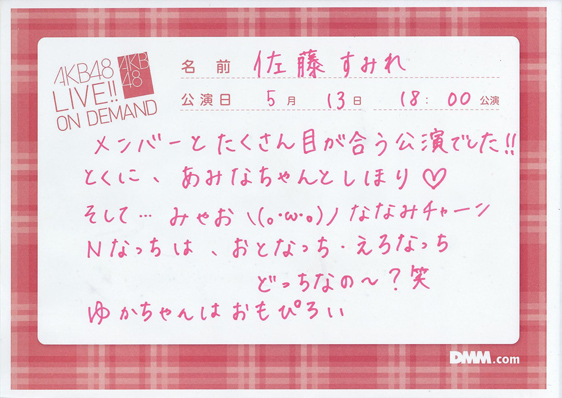 AKB48
LIVE!!
ON DEMAND
AKB
48
名前 佐藤すみれ
公演日 5月 13日 18:00 公演
メンバーとたくさん目が合う公演でした!!
とくに、あみなちゃんとしほり♡
そして… みゃお ヽ(｡･ω･｡)ノ ななみチャーン
Nなっちは、おとなっち・えろなっち
どっちなの〜？笑
ゆかちゃんはおもぴろい
DMM.com